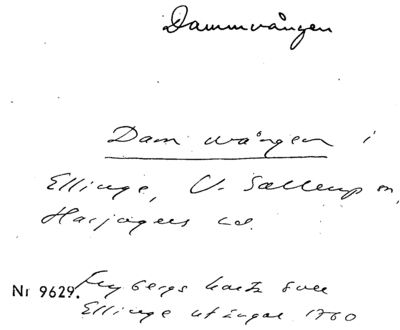 Dammvången
Dam wången i
Ellinge, V. Sallerup sn,
Harjagers hd.
Nr 9629. Rybergs karta över
Ellinge utängar 1760